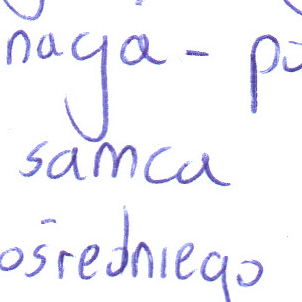 naga - po
samca
ośredniego